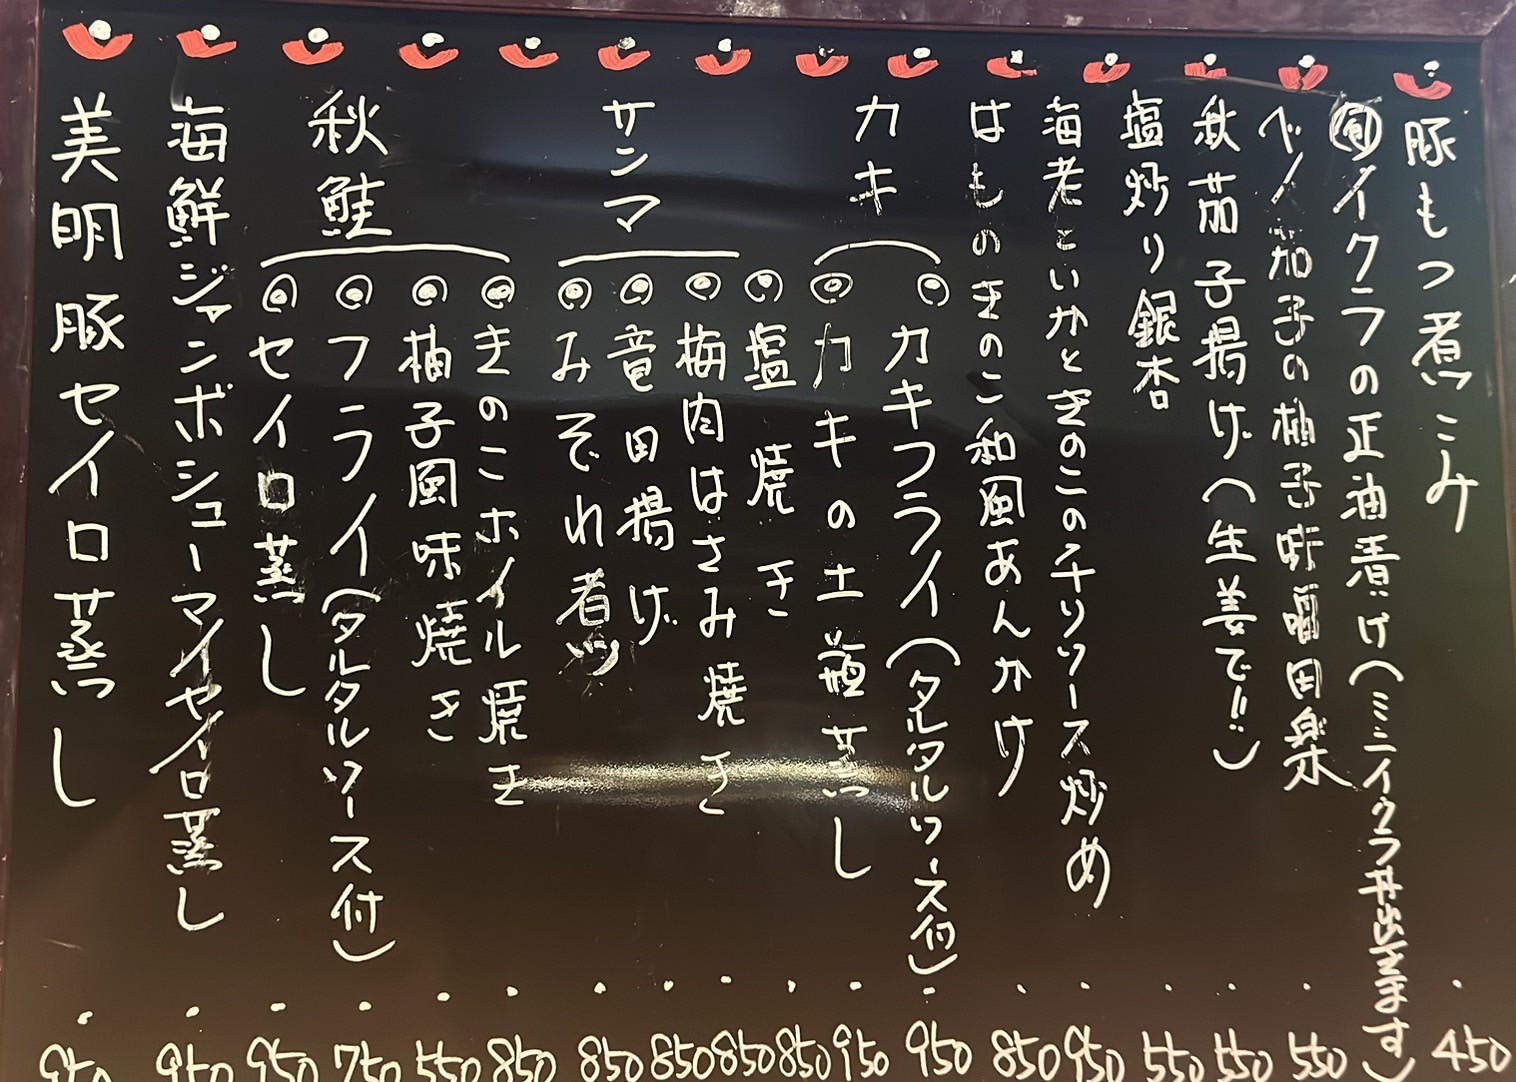 豚もつ煮こみ 450
旬イクラの正油漬け(ミニイクラ丼出きます)
べノ茄子の柚子味噌田楽 550
秋茄子揚げ(生姜で!!) 550
塩炒り銀杏 550
海老といかときのこのチリソース炒め 950
はものきのこ和風あんかけ 850
カキ
カキフライ(タルタルソース付) 950
カキの土瓶蒸し 950
サンマ
塩焼き 850
梅肉はさみ焼き 850
竜田揚げ 850
みぞれ煮 850
秋鮭
きのこホイル焼き 850
柚子風味焼き 550
フライ(タルタルソース付) 750
セイロ蒸し 950
海鮮ジャンボシューマイセイロ蒸し 950
美明豚セイロ蒸し 950